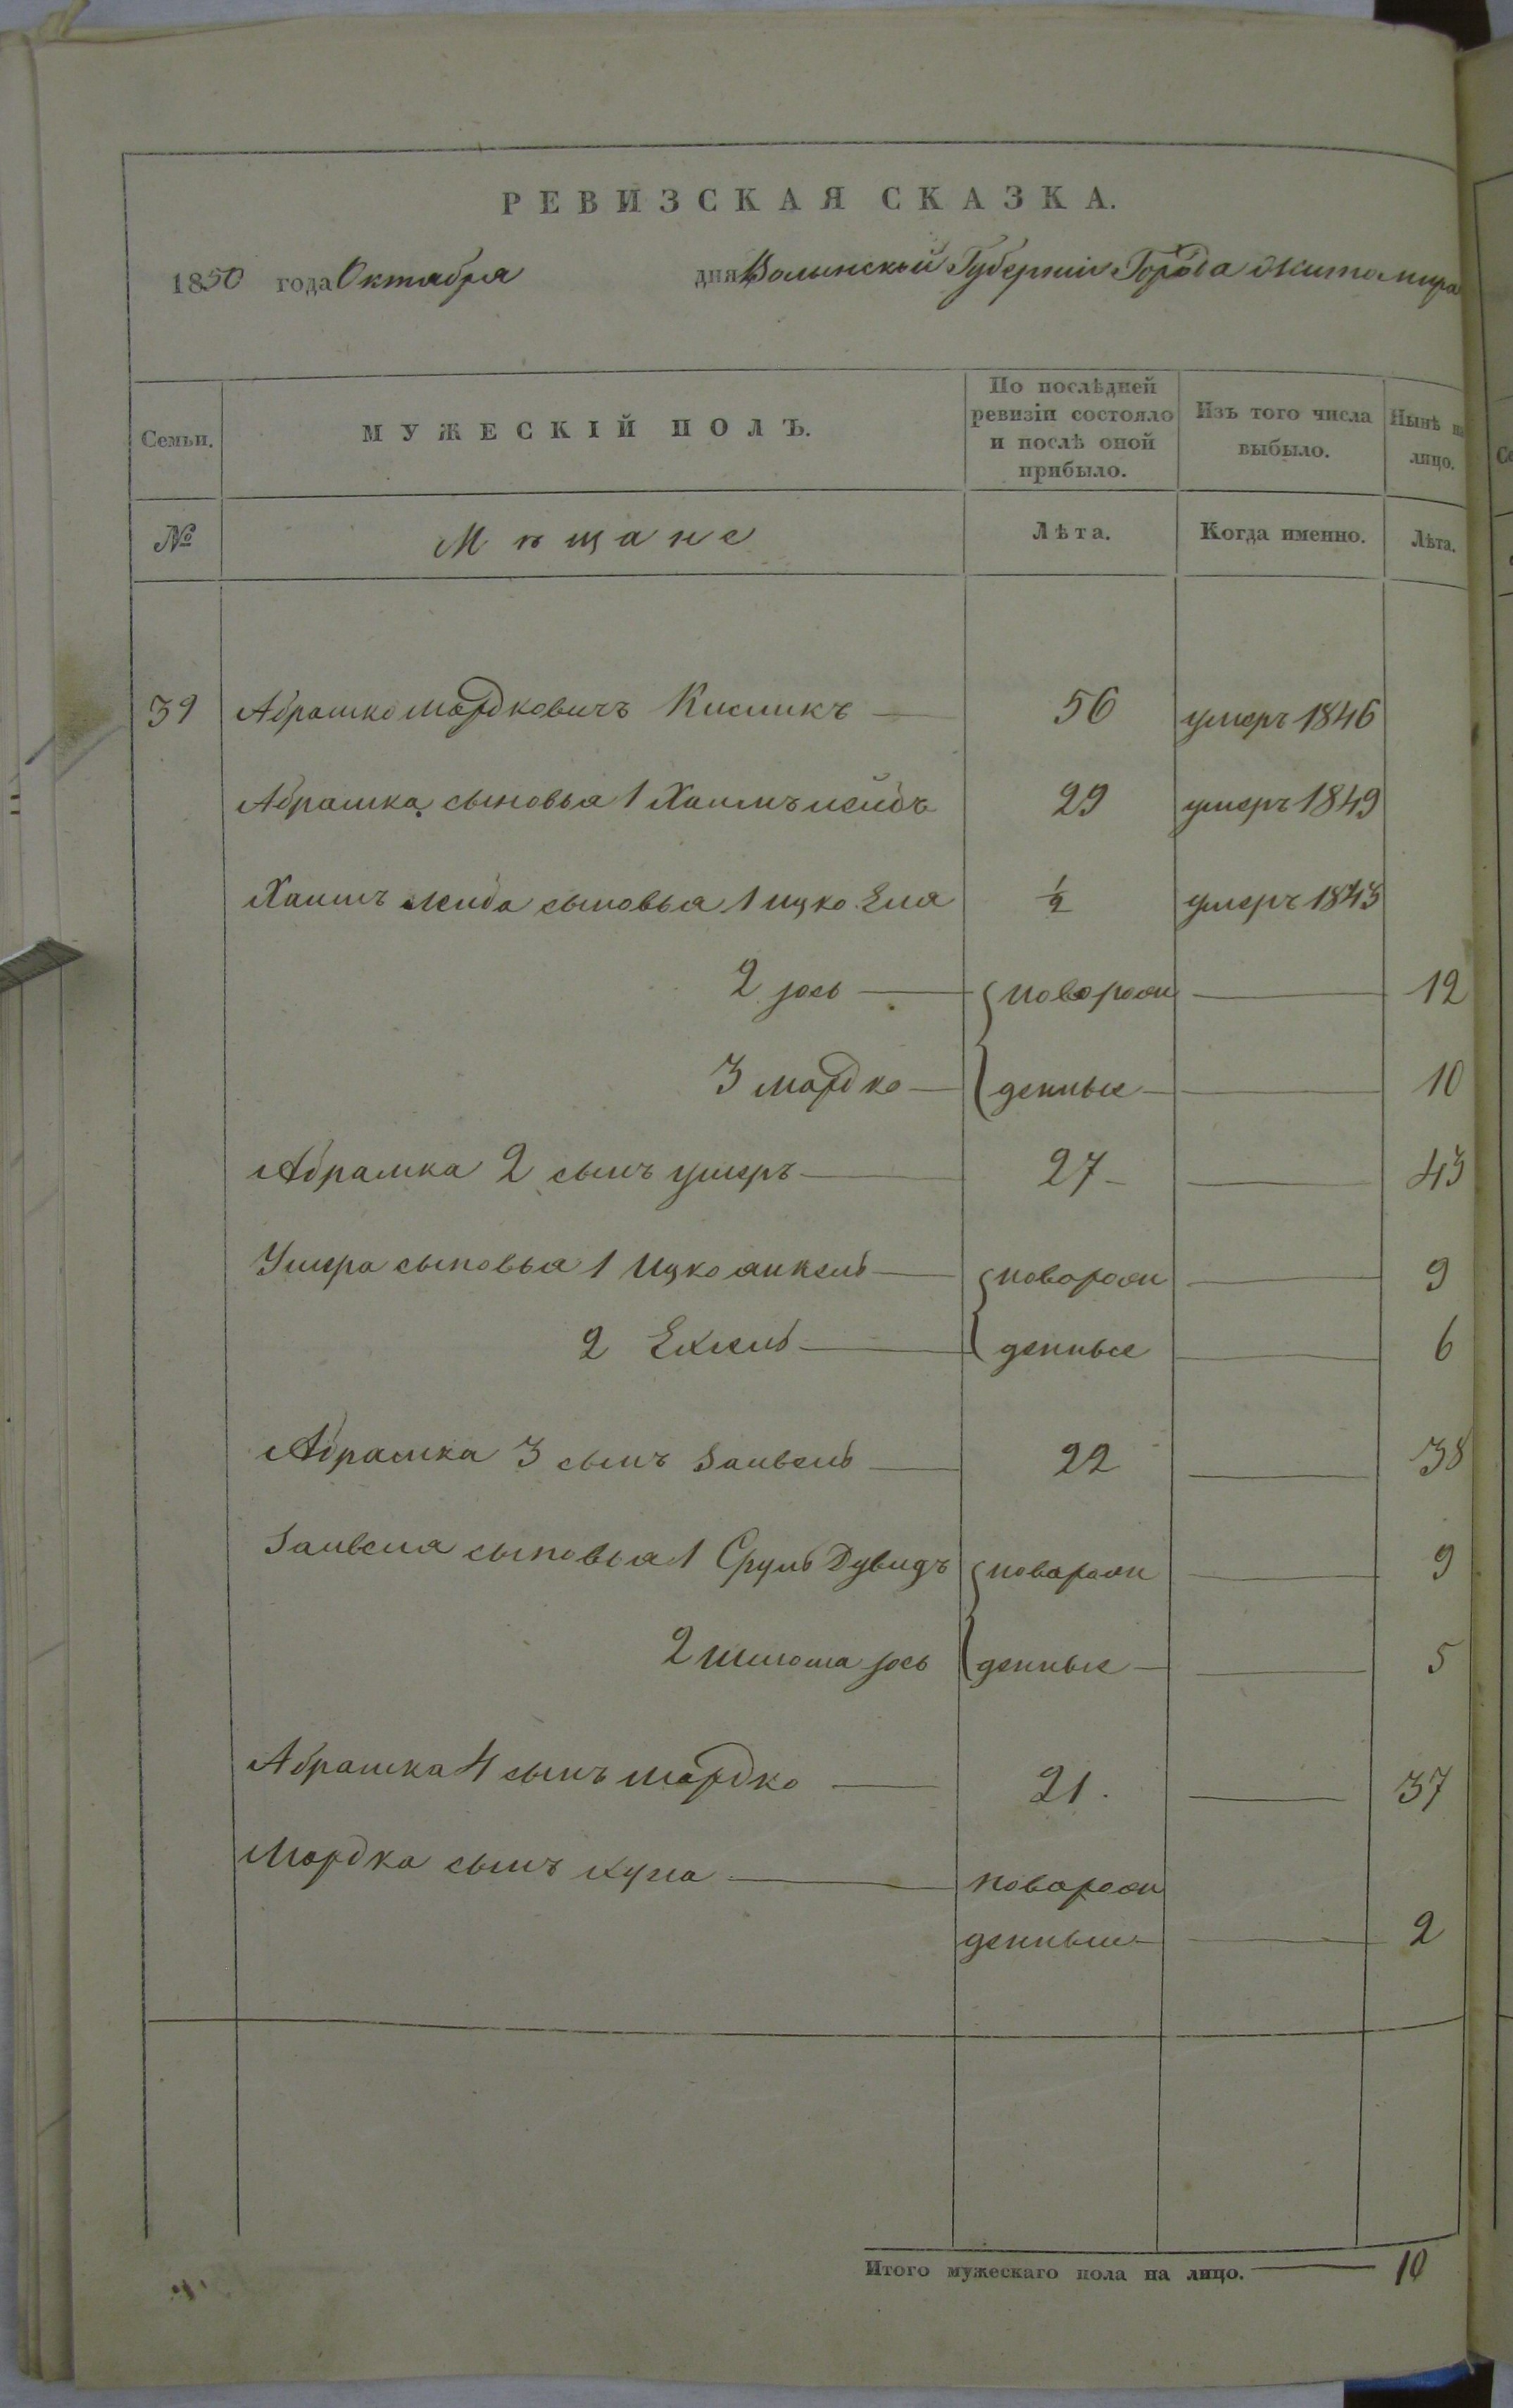 РЕВИЗСКАЯ СКАЗКА.
1850 года Октября дня Волынской Губернии Города Житомира
Семьи. МУЖЕСКІЙ ПОЛЪ. По послѣдней ревизіи состояло и послѣ оной прибыло. Изъ того числа выбыло. Нынѣ на лицо.
№ Мѣщане Лѣта. Когда именно. Лѣта.
39 Абрашко Мордковичъ Кисликъ 56 умеръ 1846
Абрашка сыновья 1 Хаимъ лейбъ 29 умеръ 1849
Хаимъ лейба сыновья 1 ицко Еля ½ умеръ 1843
2 іось новорож 12
3 мордко денные 10
Абрамка 2 сынъ ушеръ 27 43
Ушера сыновья 1 Ицко анкель новорож 9
2 Ехкель денные 6
Абрамка 3 сынъ Занвель 22 38
Занвеля сыновья 1 Сруль Дувидъ новорож 9
2 Шлома іось денные 5
Абрашка 4 сынъ мордко 21. 37
Мордка сынъ нухы новорож
денный 2
Итого мужескаго пола на лицо. 10